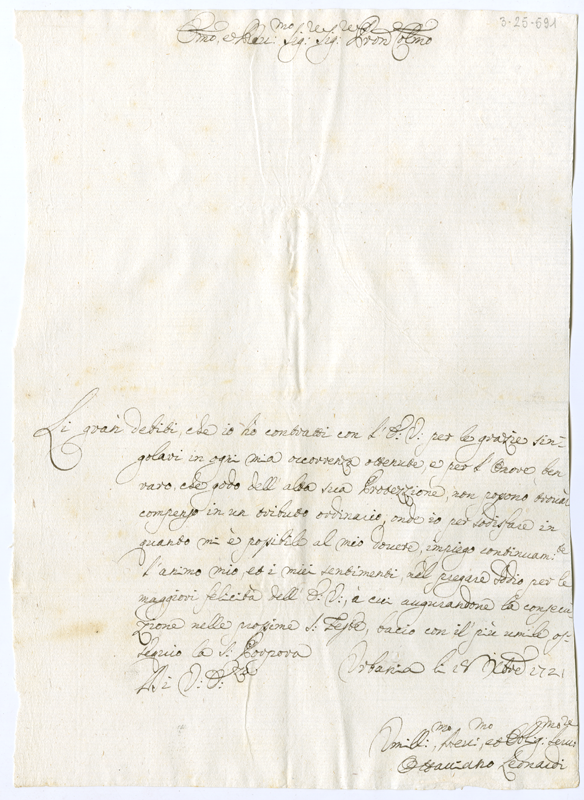 3-25-691
Emo, e Rev: mo Sig: re Sig: re Pron Colmo
Li gran debiti, che io hò contratti con l'E: V: per le grazie sin-
golari in ogni mia occorrenza ottenute, e per l'Onore ben
raro, che godo dell'alta sua Protezzione, non possono trovar
compenso in un tributo ordinario, onde io per sodisfare in
quando mi è possibile al mio dovere, impiego continuam: te
l'animo mio, et i miei sentimenti, nel pregare Iddio per le
maggiori felicità dell'E: V:, à cui augurandone la consecu-
zione nelle prossime S: Feste, bacio con il più umile os-
sequio la S: Porpora
Di V: E: Urbania li 18 Xbre 1721
Umill: mo, Dev: mo, et Obblig: mo Serv: e
Ottaviano Leonardi